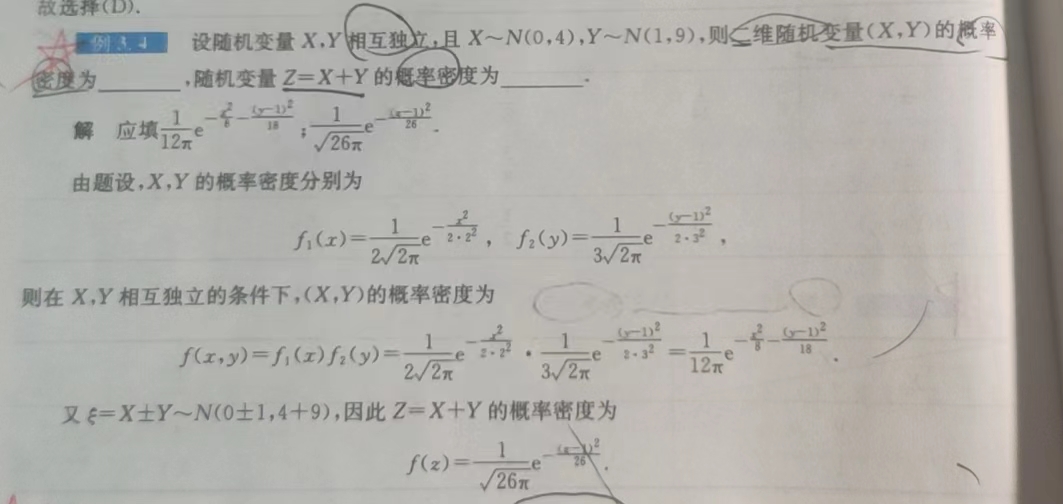 故选择(D).
例3.4 设随机变量 X,Y 相互独立,且 X~N(0,4),Y~N(1,9),则二维随机变量(X,Y)的概率
密度为______,随机变量 Z=X+Y 的概率密度为______.
解 应填 \frac{1}{12π}e^{-\frac{x^2}{8}-\frac{(y-1)^2}{18}}; \frac{1}{\sqrt{26π}}e^{-\frac{(z-1)^2}{26}}.
由题设,X,Y 的概率密度分别为
f_1(x)=\frac{1}{2\sqrt{2π}}e^{-\frac{x^2}{2·2^2}}, f_2(y)=\frac{1}{3\sqrt{2π}}e^{-\frac{(y-1)^2}{2·3^2}},
则在 X,Y 相互独立的条件下,(X,Y)的概率密度为
f(x,y)=f_1(x)f_2(y)=\frac{1}{2\sqrt{2π}}e^{-\frac{x^2}{2·2^2}}·\frac{1}{3\sqrt{2π}}e^{-\frac{(y-1)^2}{2·3^2}}=\frac{1}{12π}e^{-\frac{x^2}{8}-\frac{(y-1)^2}{18}}.
又 ξ=X±Y~N(0±1,4+9),因此 Z=X+Y 的概率密度为
f(z)=\frac{1}{\sqrt{26π}}e^{-\frac{(z-1)^2}{26}}.